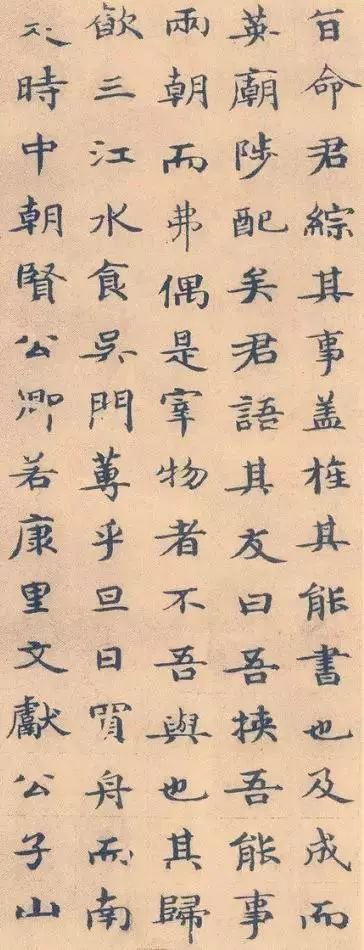 旨命君綜其事盖旌其能書也及成而
英廟陟配矣君語其友曰吾挾吾能事
兩朝而弗偶是宰物者不吾與也其歸
㱃三江水食吳門蓴乎旦日買舟而南
時中朝賢公卿若康里文獻公子山